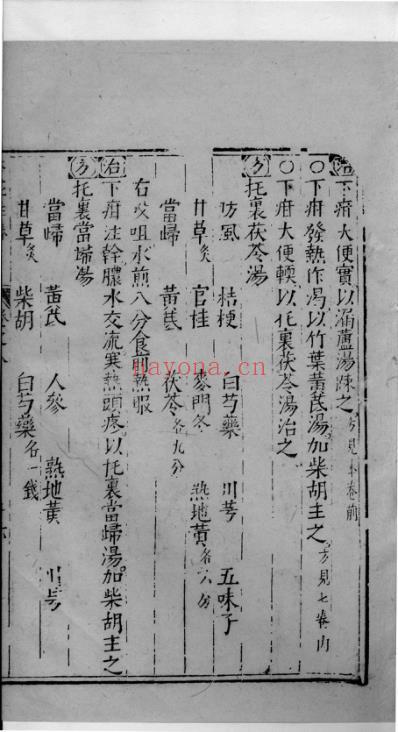 治下疳大便實以漏蘆湯疎之方見本卷前
○下疳發熱作渴以竹葉黃芪湯加柴胡主之方見七卷內
○下疳大便輭以托裏茯苓湯治之
方托裏茯苓湯
防風 桔梗 白芍藥 川芎 五味子
甘草炙 官桂 麥門冬 熟地黃各八分
當歸 黃芪 茯苓各九分
右㕮咀水煎八分食間熱服
治下疳注幹膿水交流寒熱頭疼以托裏當歸湯加柴胡主之
方托裏當歸湯
當歸 黃芪 人參 熟地黃 川芎
甘草炙 柴胡 白芍藥各一錢
hayona.cn